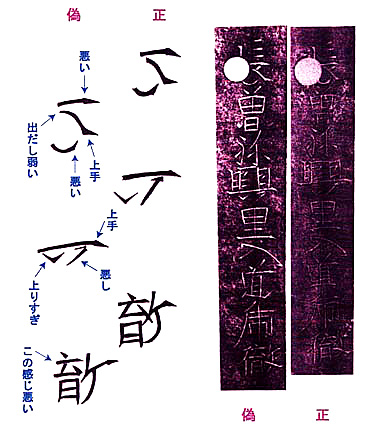 正
偽
悪い
出だし弱い
上手
悪い
上手
悪し
上りすぎ
この感じ悪い
長曽祢興里入道乕徹
長曽祢興里入道乕徹
正
偽